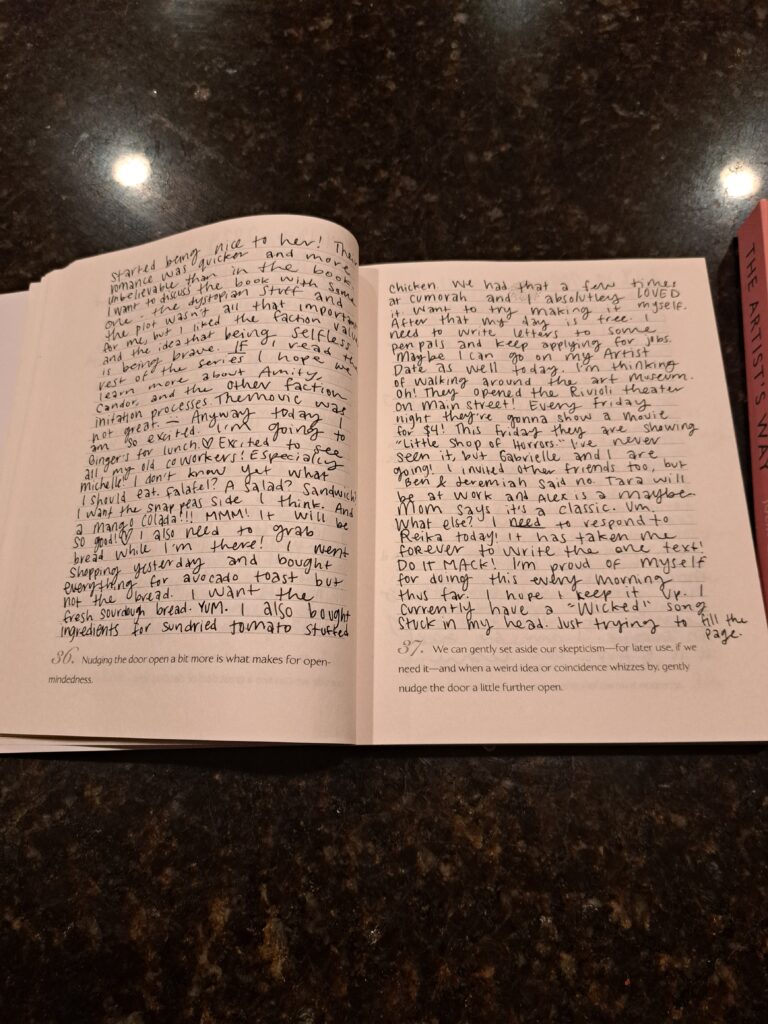 started being nice to her! Their
romance was quicker and more
unbelievable than in the book.
I want to discuss the book with some
one - the dystopian stuff and
the plot wasn't all that important
for me, but I liked the faction values
and the idea that being selfless
is being brave. IF I read the
rest of the series I hope we
learn more about Amity,
Candor, and the other faction
initation processes. The movie was
not great. — Anyway today I
am so excited. I'm going to
Ginger's for lunch.♡ Excited to see
all my old coworkers! Especially
Michelle! I don't know yet what
I should eat. Falafel? A salad? Sandwich?
I want the snap peas side I think. And
a mango colada!!! MMM! It will be
so good!♡ I also need to grab
bread while I'm there! I went
shopping yesterday and bought
everything for avocado toast but
not the bread. I want the
fresh sourdough bread. YUM. I also bought
ingredients for sundried tomato stuffed
36. Nudging the door open a bit more is what makes for open-
mindedness.
chicken. We had that a few times
at Cumorah and I absolutley LOVED
it. Want to try making it myself.
After that my day is free. I
need to write letters to some
pen pals and keep applying for jobs.
Maybe I can go on my Artist
Date as well today. I'm thinking
of walking around the art museum.
Oh! They opened the Rivioli theater
on main street! Every friday
night they're gonna show a movie
for $4! This friday they are showing
"Little Shop of Horrors." I've never
seen it, but Gabrielle and I are
going! I invited other friends too, but
Ben & Jeremiah said no. Tara will
be at work and Alex is a maybe.
Mom says it's a classic. Um.
What else? I need to respond to
Reika today! It has taken me
forever to write the one text!
DO IT MACK! I'm proud of myself
for doing this every morning
thus far. I hope I keep it up. I
currently have a "Wicked" song
stuck in my head. Just trying to fill the
page.
37. We can gently set aside our skepticism—for later use, if we
need it—and when a weird idea or coincidence whizzes by, gently
nudge the door a little further open.
THE ARTIST'S WAY